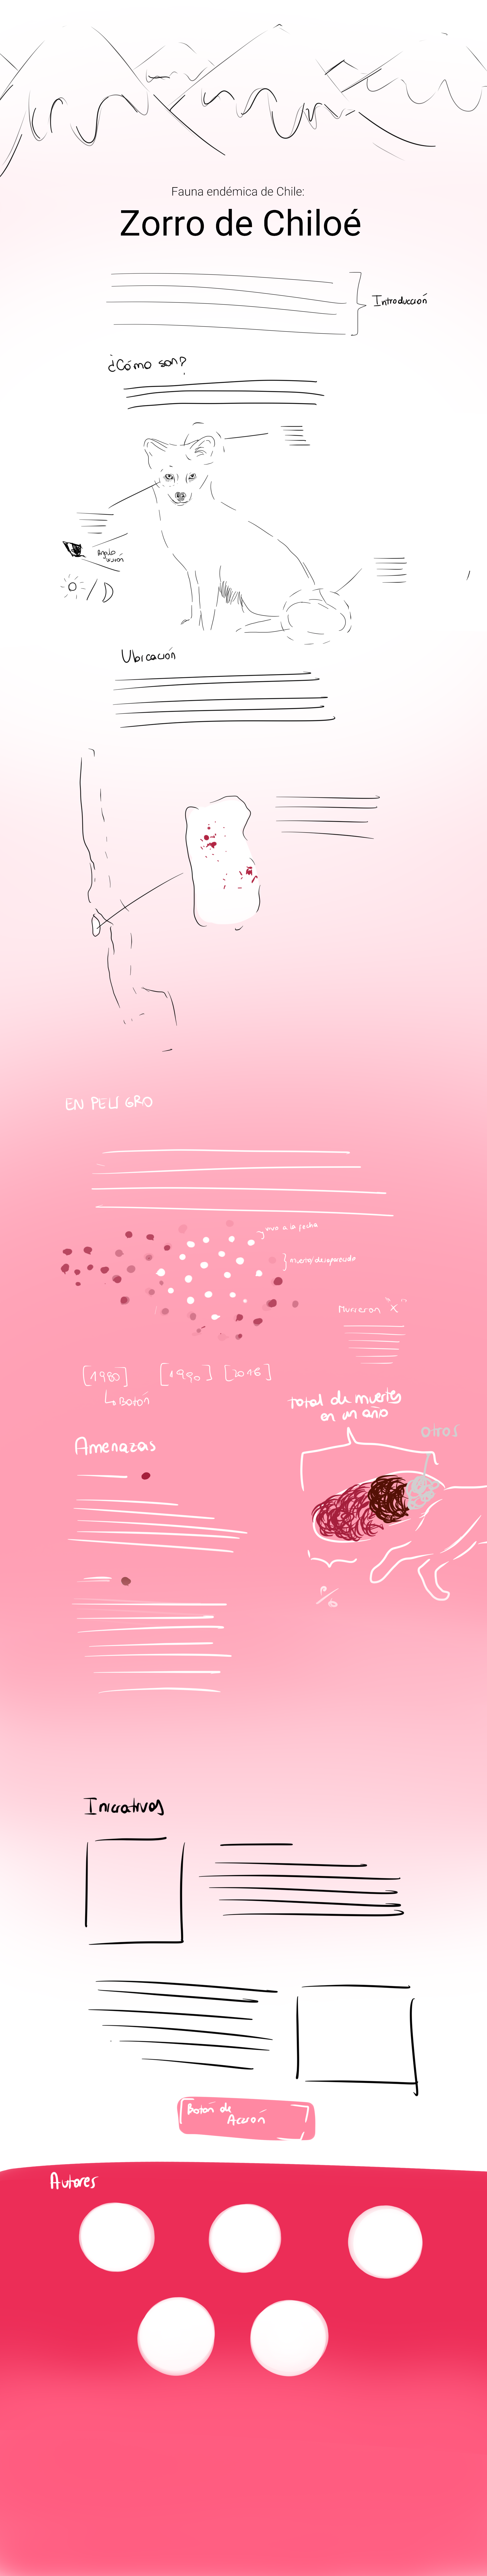 Fauna endémica de Chile:
Zorro de Chiloé
Introducción
¿Cómo son?
Ángulo
Ubicación
EN PELIGRO
a la fecha
Murieron "X"
[1980]
[1990]
[2016]
Botón
Total de muertes
en un año
Otros
Amenazas
%
Iniciativas
Botón de
Acción
Autores